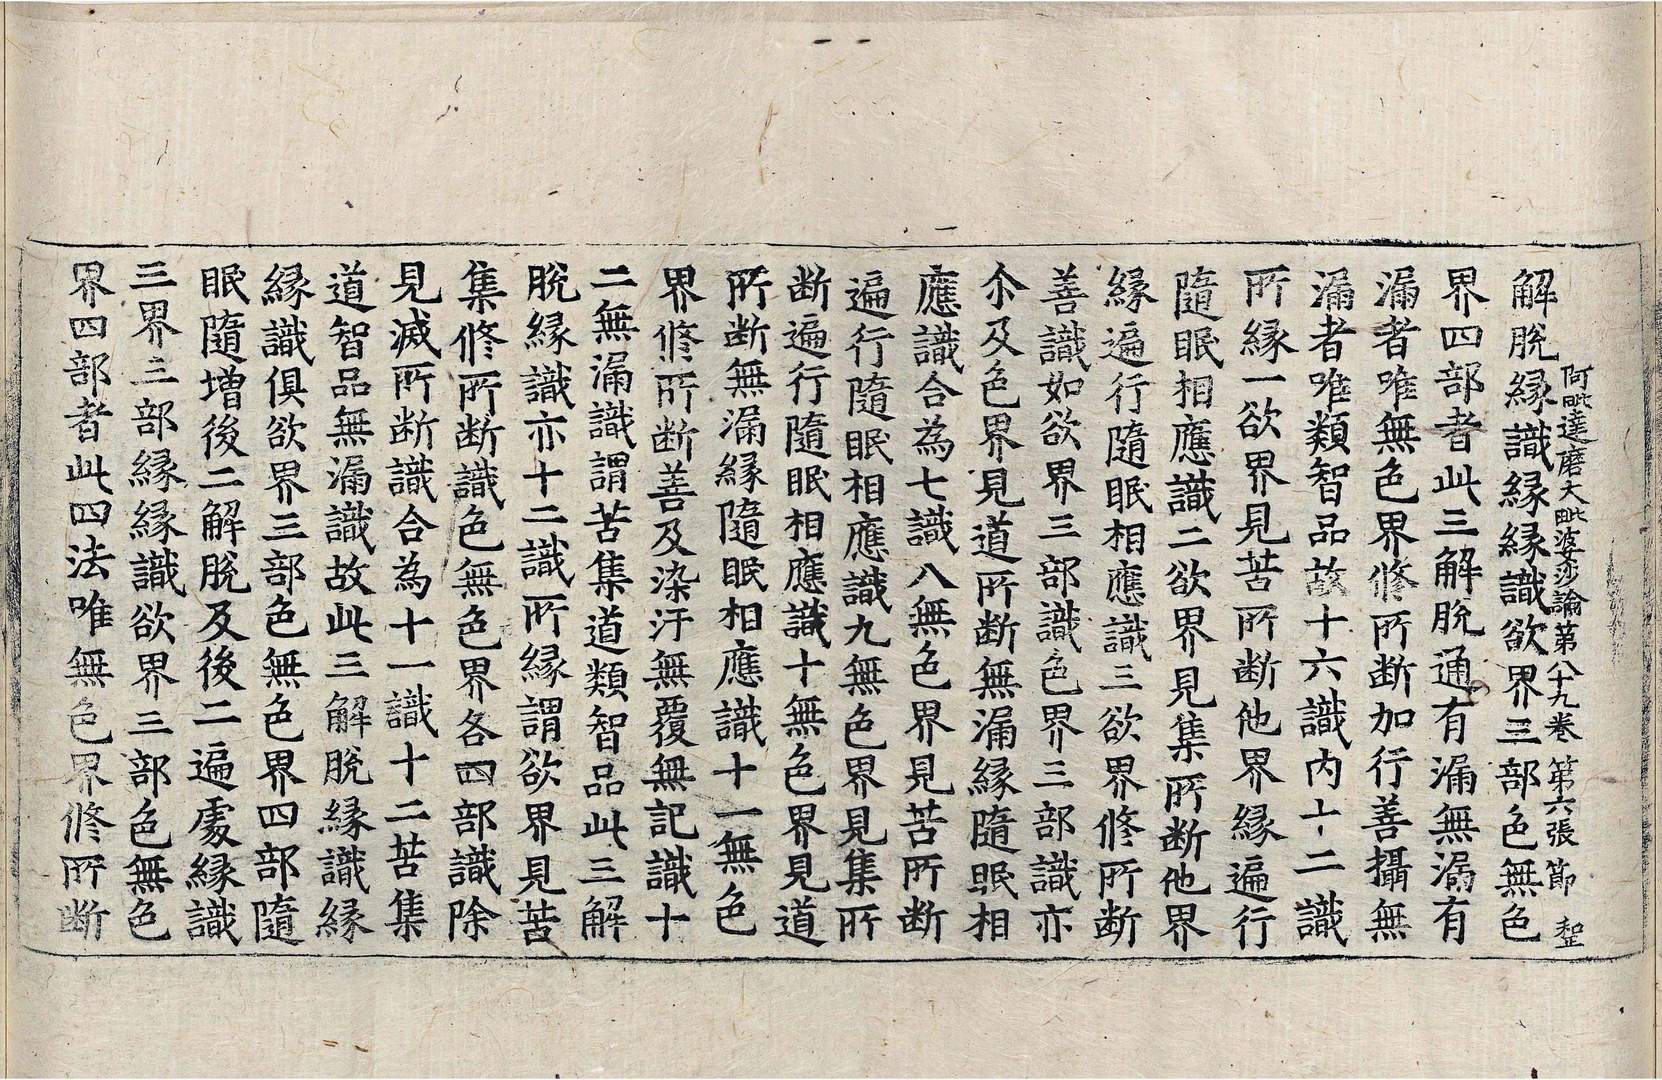 阿毗達磨大毗婆沙論第八十九卷 第六張 節
解脫緣識緣緣識欲界三部色無色
界四部者此三解脫通有漏無漏有
漏者唯無色界修所斷加行善攝無
漏者唯類智品故十六識內十二識
所緣一欲界見苦所斷他界緣遍行
隨眠相應識二欲界見集所斷他界
緣遍行隨眠相應識三欲界修所斷
善識如欲界三部識色界三部識亦
尒及色界見道所斷無漏緣隨眠相
應識合為七識八無色界見苦所斷
遍行隨眠相應識九無色界見集所
斷遍行隨眠相應識十無色界見道
所斷無漏緣隨眠相應識十一無色
界修所斷善及染汙無覆無記識十
二無漏識謂苦集道類智品此三解
脫緣識亦十二識所緣謂欲界見苦
集修所斷識色無色界各四部識除
見滅所斷識合為十一識十二苦集
道智品無漏識故此三解脫緣識緣
緣識俱欲界三部色無色界四部隨
眠隨增後二解脫及後二遍處緣識
三界三部緣緣識欲界三部色無色
界四部者此四法唯無色界修所斷